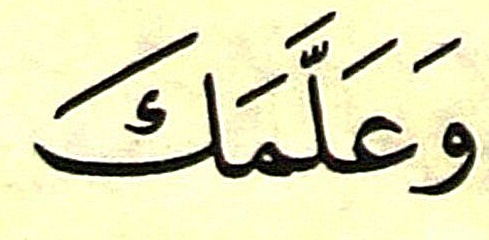 وَعَلَّمَكَ